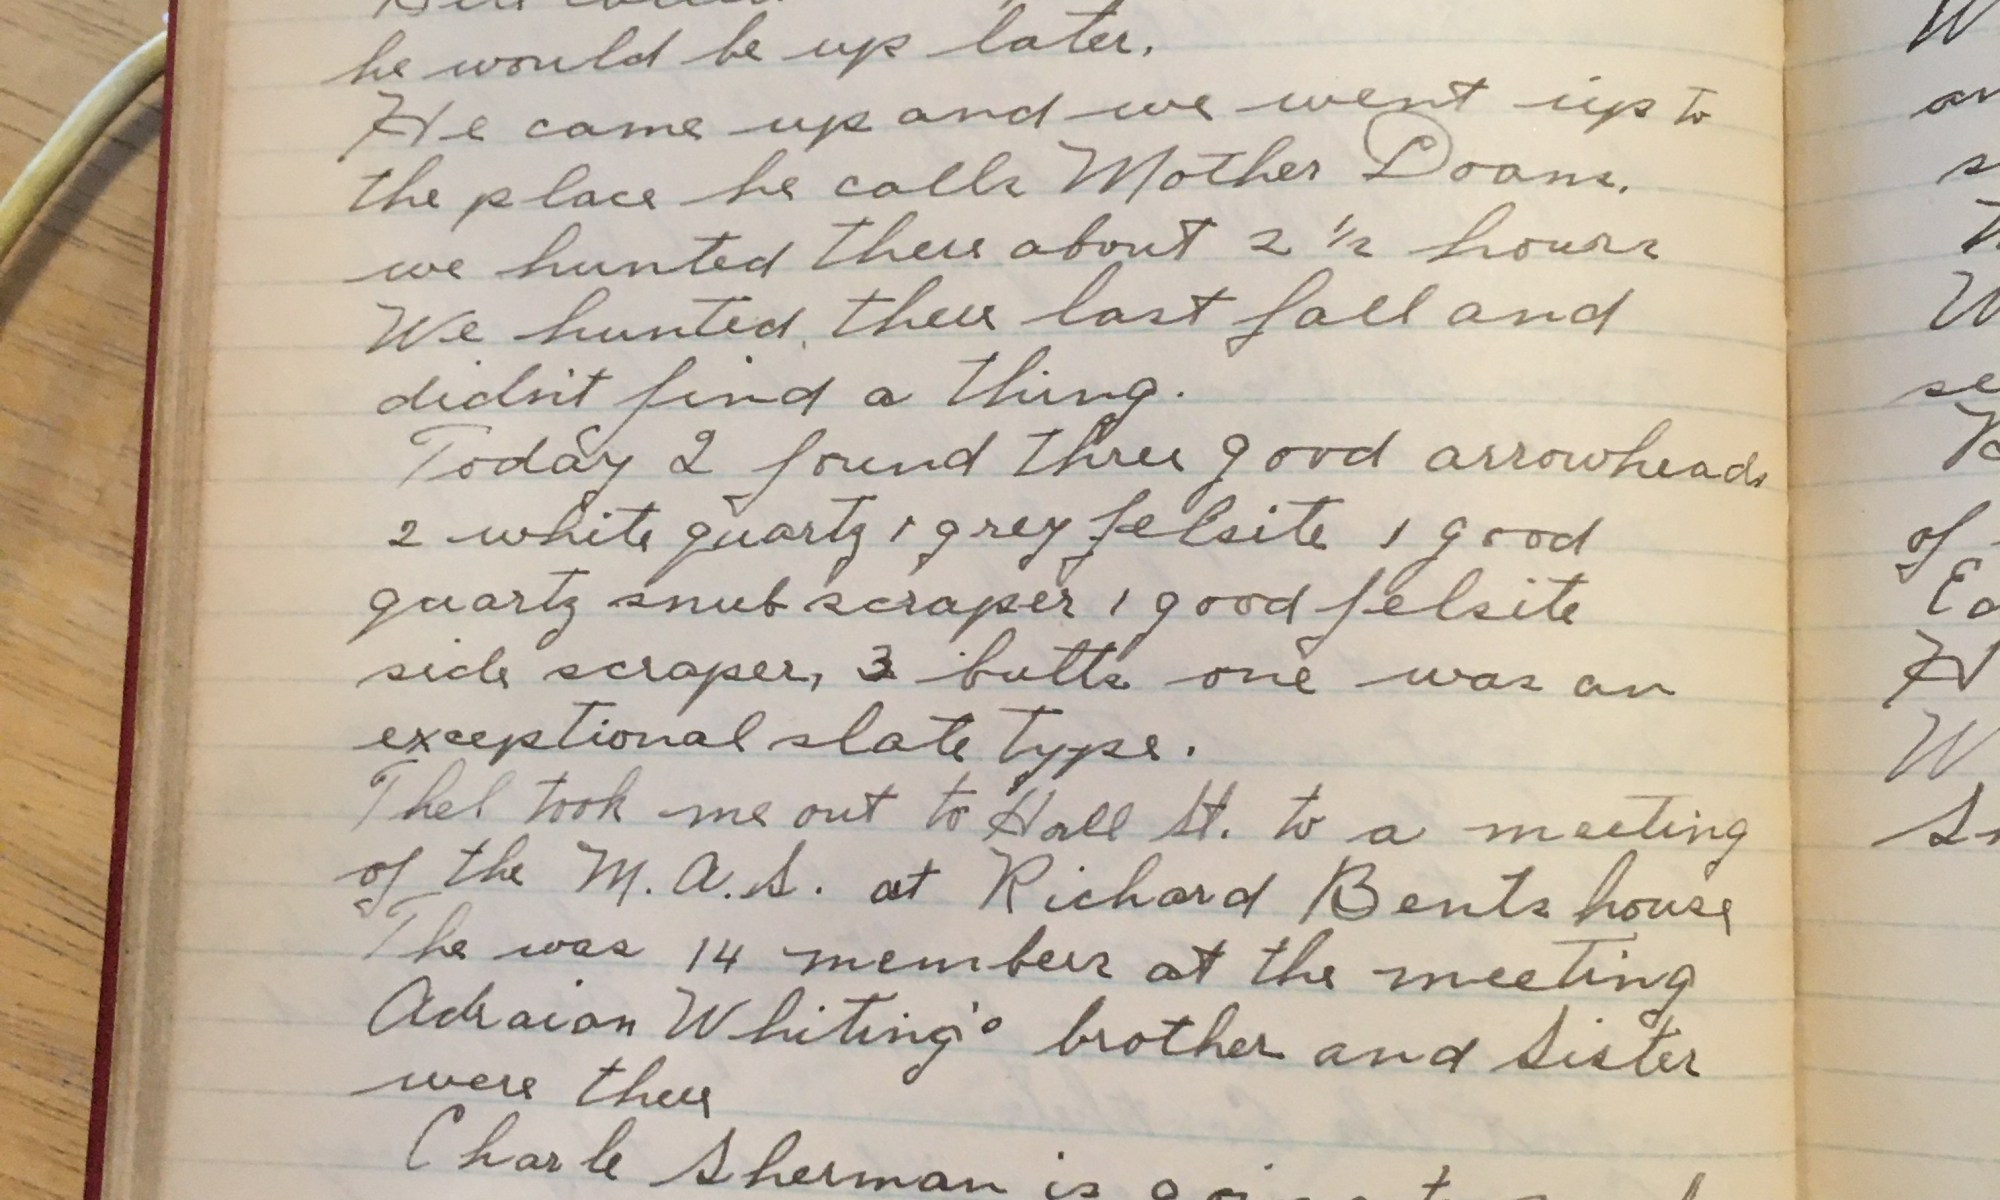 he would be up later.
He came up and we went up to
the place he calls Mother Doans.
we hunted there about 2 1/2 hours
We hunted there last fall and
didn't find a thing.
Today I found three good arrowheads
2 white quartz 1 grey felsite 1 good
quartz snub scraper 1 good felsite
side scraper, 3 butts one was an
exceptional slate type.
Thel took me out to Hall St. to a meeting
of the M.A.S. at Richard Bents house
The was 14 members at the meeting
Adraian Whiting's brother and Sister
were there
Charle Sherman is
W
an
W
of
Ea
H
W